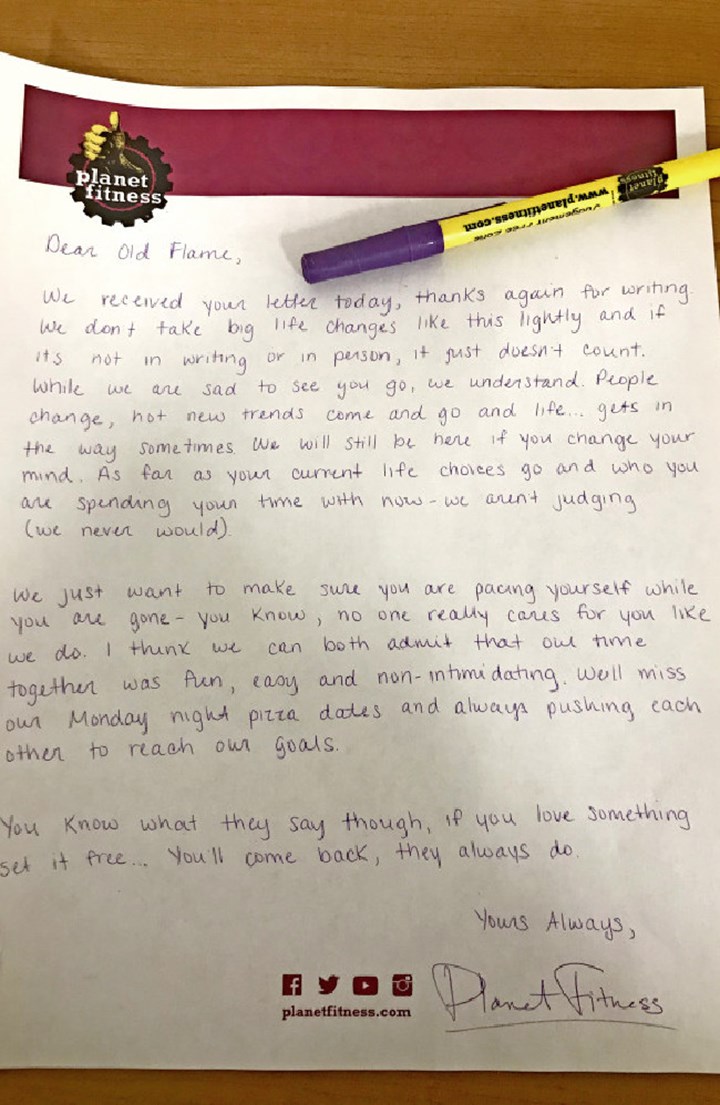 planet
fitness
www.planetfitness.com
planet
fitness
Dear Old Flame,
We received your letter today, thanks again for writing.
We don't take big life changes like this lightly and if
its not in writing or in person, it just doesn't count.
While we are sad to see you go, we understand. People
change, hot new trends come and go and life... gets in
the way sometimes. We will still be here if you change your
mind. As far as your current life choices go and who you
are spending your time with now - we aren't judging
(we never would).
We just want to make sure you are pacing yourself while
you are gone - you know, no one really cares for you like
we do. I think we can both admit that our time
together was fun, easy and non-intimidating. We'll miss
our Monday night pizza dates and always pushing each
other to reach our goals.
You know what they say though, if you love something
set it free... You'll come back, they always do.
Yours Always,
Planet Fitness
planetfitness.com